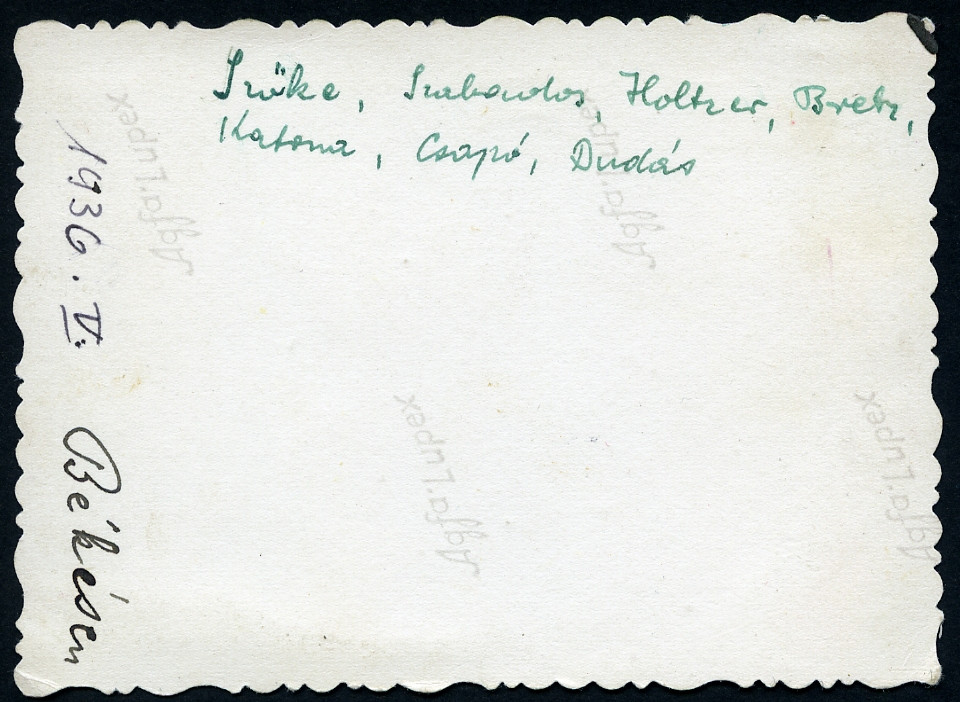 Szőke, Szabados, Holtzer, Bretz,
Katona, Csapó, Dudás
1936. V.
Békésen
Agfa Lupex
Agfa Lupex
Agfa Lupex
Agfa Lupex